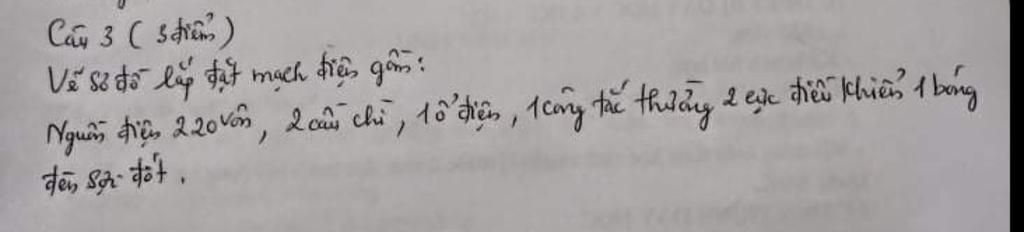 Câu 3 ( 3 điểm )
Vẽ sơ đồ lắp đặt mạch điện gồm :
Nguồn điện 220 vôn, 2 cầu chì, 1 ổ điện, 1 công tắc thường 2 cực điều khiển 1 bóng
đèn sợi đốt.